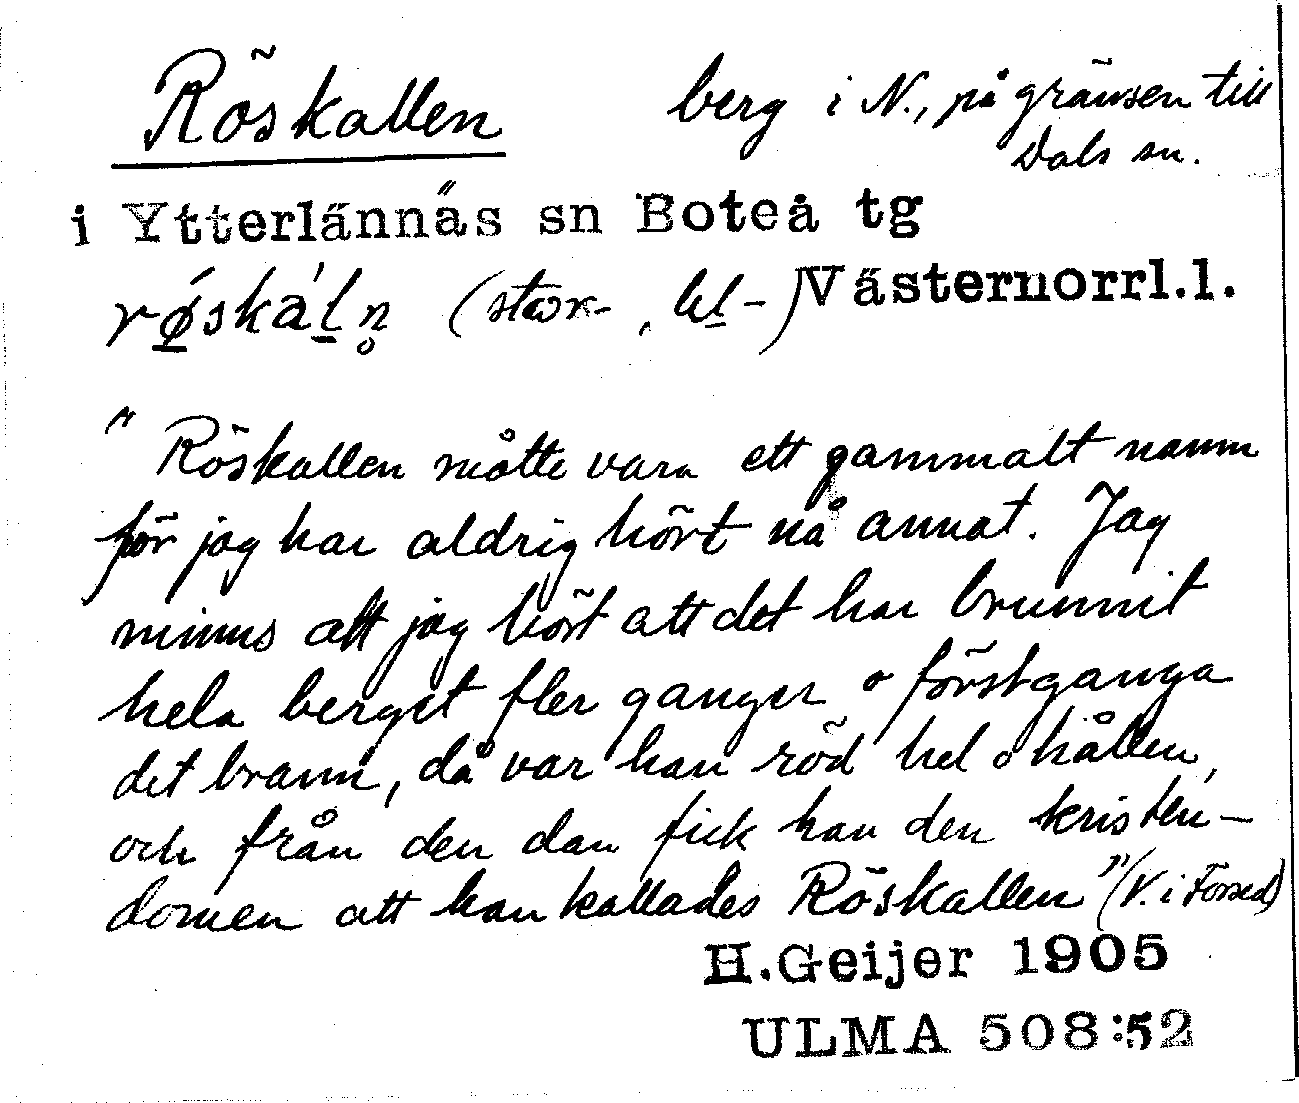 Röskallen berg i N., på gränsen till
Dals sn.
i Ytterlännäs sn Boteå tg
Västernorrl.l.
röskáln̥ (stor-, lil-)
"Röskallen måtte vara ett gammalt namn
för jag har aldrig hört nå annat. Jag
minns att jag hört att det har brunnit
hela berget fler ganger o förstganga
det brann, då var han röd hel o hållen,
och från den dan fick han den kristen-
domen att han kallades Röskallen" (V. i Forsed)
H.Geijer 1905
ULMA 508:52